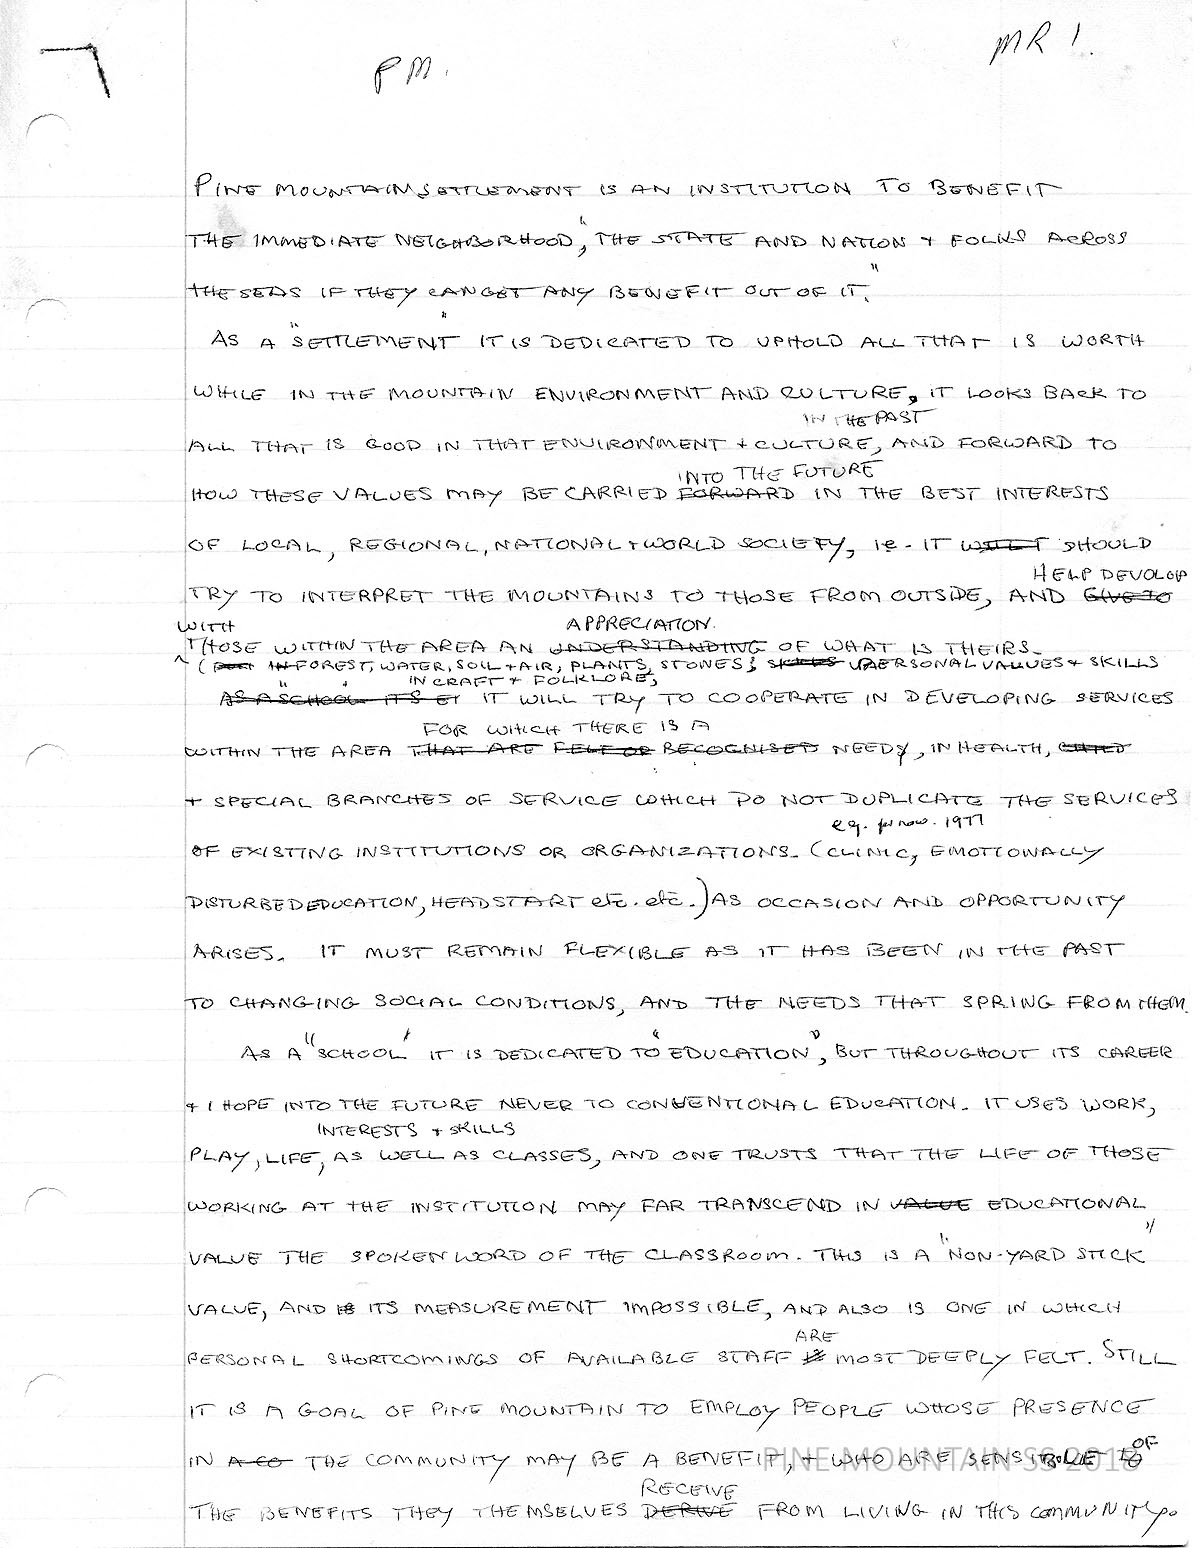 MR 1.
PM.
PINE MOUNTAIN SETTLEMENT IS AN INSTITUTION TO BENEFIT
THE IMMEDIATE NEIGHBORHOOD, "THE STATE AND NATION + FOLKS ACROSS
THE SEAS IF THEY CAN GET ANY BENEFIT OUT OF IT."
AS A "SETTLEMENT" IT IS DEDICATED TO UPHOLD ALL THAT IS WORTH
WHILE IN THE MOUNTAIN ENVIRONMENT AND CULTURE, IT LOOKS BACK TO
IN THE PAST
ALL THAT IS GOOD IN THAT ENVIRONMENT + CULTURE, AND FORWARD TO
INTO THE FUTURE
HOW THESE VALUES MAY BE CARRIED FORWARD IN THE BEST INTERESTS
OF LOCAL, REGIONAL, NATIONAL + WORLD SOCIETY, ie. IT WILL SHOULD
HELP DEVOLOP
TRY TO INTERPRET THE MOUNTAINS TO THOSE FROM OUTSIDE, AND GIVE TO
WITH APPRECIATION.
THOSE WITHIN THE AREA AN UNDERSTANDING OF WHAT IS THEIRS.
( IN FOREST, WATER, SOIL + AIR, PLANTS, STONES; SKILLS PERSONAL VALUES + SKILLS
IN CRAFT + FOLKLORE,
AS A "SCHOOL" ITS IT WILL TRY TO COOPERATE IN DEVELOPING SERVICES
FOR WHICH THERE IS A
WITHIN THE AREA THAT ARE FELT OR RECOGNISED NEED, IN HEALTH, CHILD
+ SPECIAL BRANCHES OF SERVICE WHICH DO NOT DUPLICATE THE SERVICES
eg. for now. 1977
OF EXISTING INSTITUTIONS OR ORGANIZATIONS. (CLINIC, EMOTIONALLY
DISTURBED EDUCATION, HEADSTART etc. etc.) AS OCCASION AND OPPORTUNITY
ARISES. IT MUST REMAIN FLEXIBLE AS IT HAS BEEN IN THE PAST
TO CHANGING SOCIAL CONDITIONS, AND THE NEEDS THAT SPRING FROM THEM.
AS A "SCHOOL" IT IS DEDICATED TO "EDUCATION", BUT THROUGHOUT ITS CAREER
+ I HOPE INTO THE FUTURE NEVER TO CONVENTIONAL EDUCATION. IT USES WORK,
INTERESTS + SKILLS
PLAY, LIFE, AS WELL AS CLASSES, AND ONE TRUSTS THAT THE LIFE OF THOSE
WORKING AT THE INSTITUTION MAY FAR TRANSCEND IN VALUE EDUCATIONAL
VALUE THE SPOKEN WORD OF THE CLASSROOM. THIS IS A "NON-YARD STICK"
VALUE, AND IS ITS MEASUREMENT IMPOSSIBLE, AND ALSO IS ONE IN WHICH
ARE
PERSONAL SHORTCOMINGS OF AVAILABLE STAFF IS MOST DEEPLY FELT. STILL
IT IS A GOAL OF PINE MOUNTAIN TO EMPLOY PEOPLE WHOSE PRESENCE
OF
IN A CO THE COMMUNITY MAY BE A BENEFIT, + WHO ARE SENSIBLE TO
PINE MOUNTAIN SS 2018
RECEIVE
THE BENEFITS THEY THEMSELVES DERIVE FROM LIVING IN THIS COMMUNITY.